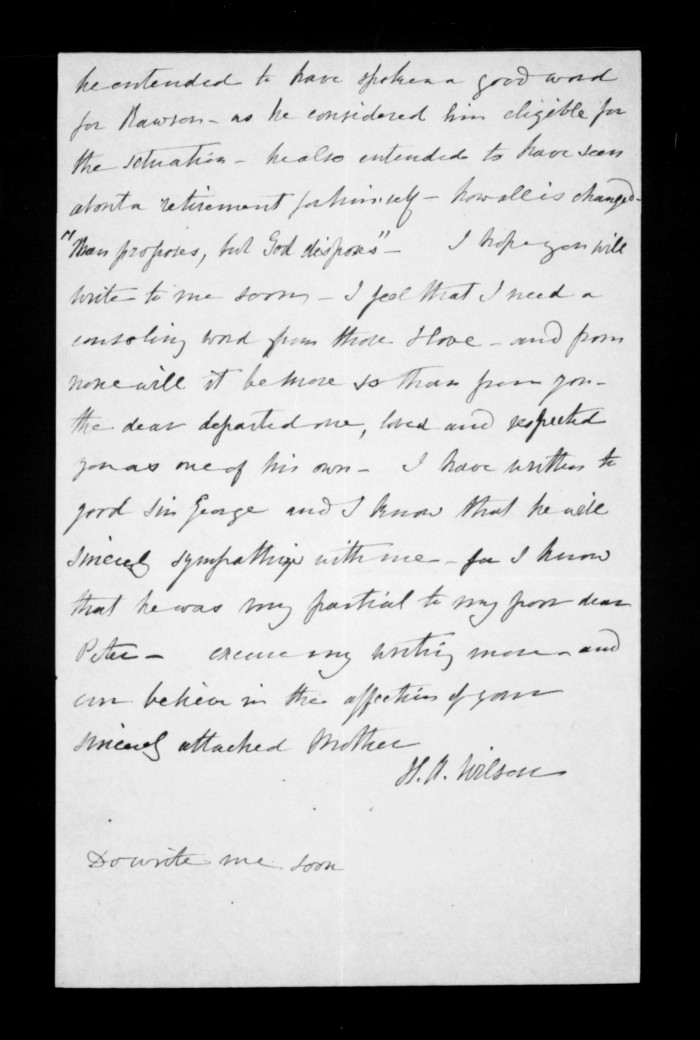 he entended to have spoken a good word
for Rawson - as he considered him eligible for
the setuation - he also entended to have seen
about a retirement for himself - how all is changed -
"Man proposes, but God disposes" - I hope you will
write to me soon, - I feel that I need a
consoling word from those I love - and from
none will it be more so than from you -
the dear departed one, loved and respected
you as one of his own - I have written to
good Sir George and I know that he will
sincerely sympathize with me - for I know
that he was very partial to my poor dear
Peter - excuse my writing more - and
ever believe in the affection of your
sincerely attached Mother
H. A. Wilson
Do write me soon